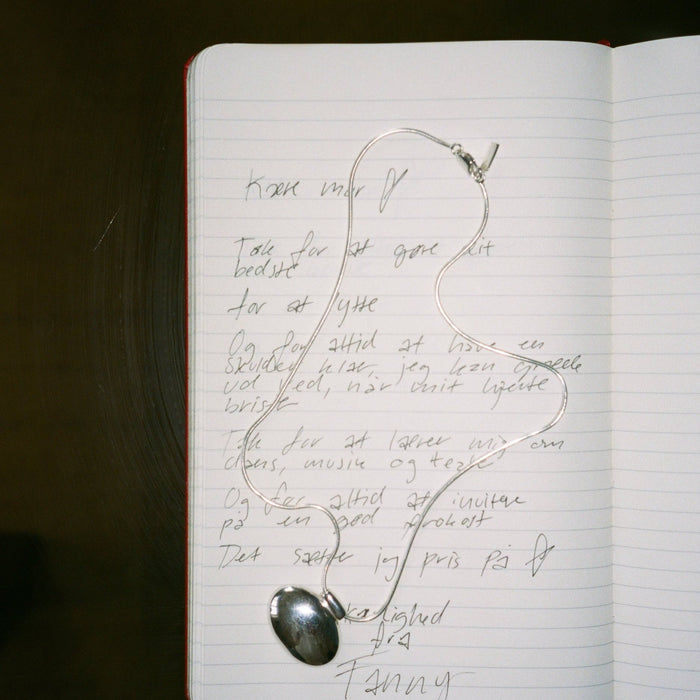 Kære mor
Tak for at gøre dit
bedste
for at lytte
Og for altid at have en
skulder klar, jeg kan græde
ud ved, når mit hjerte
brister
Tak for at lærer mig om
dans, musik og teater
Og for altid at invitere
på en god frokost
Det sætter jeg pris på
kærlighed
fra
Fanny